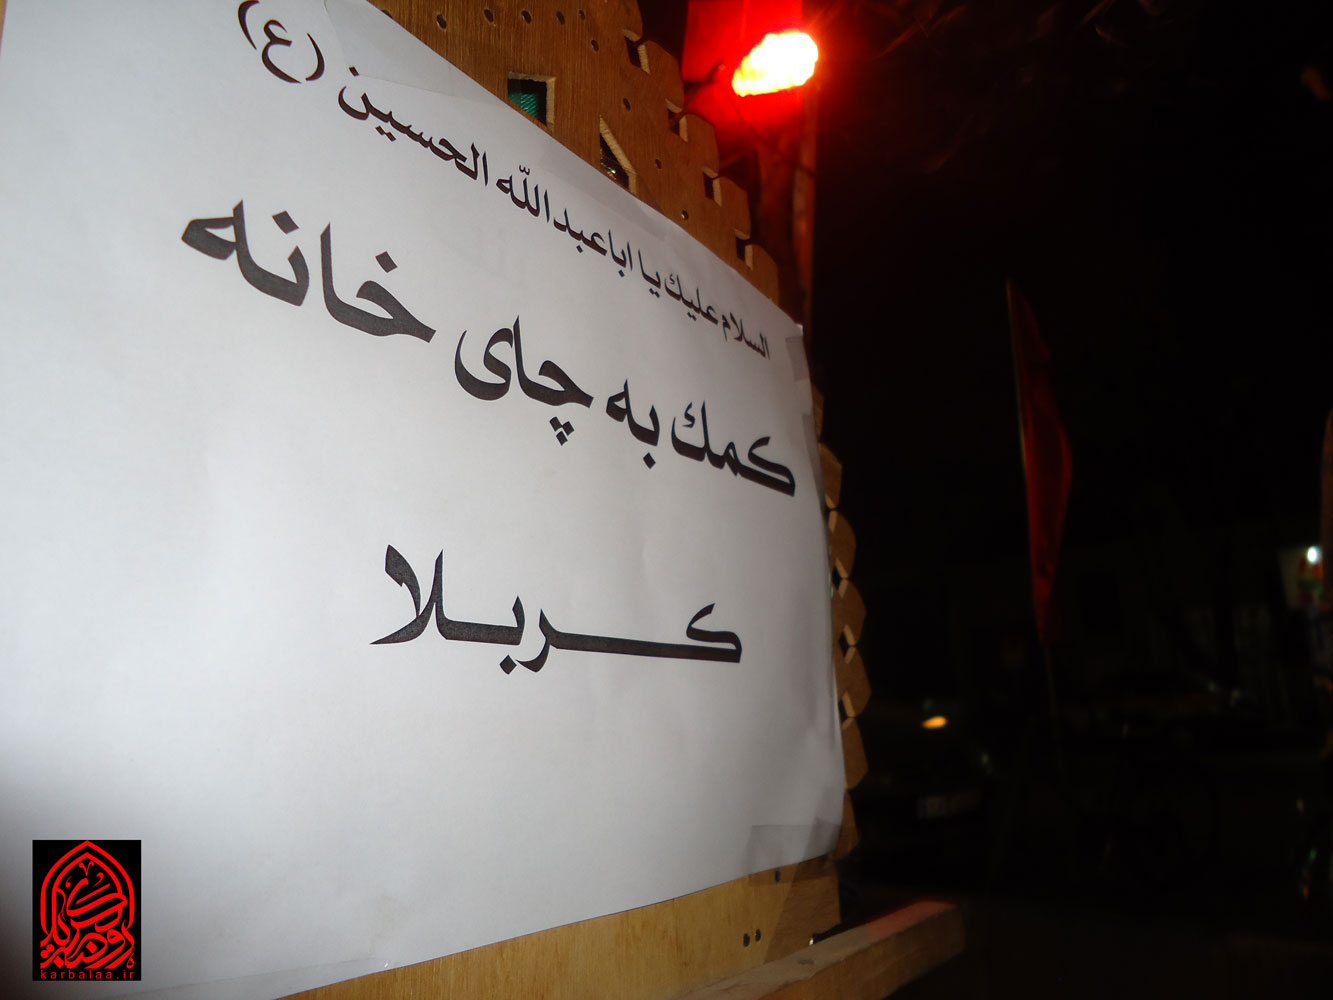 السلام عليك يا اباعبدالله الحسين (ع)
كمك به چای خانه
كربلا
karbalaa.ir